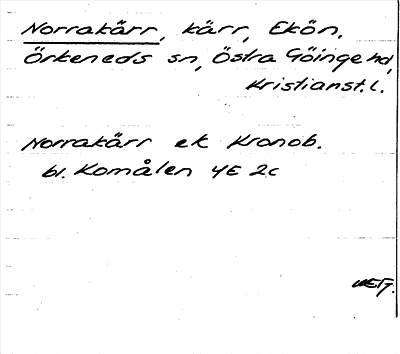 Norrakärr, kärr, Ekön.
Örkeneds sn, Östra Göinge hd,
Kristianst. l.
Norrakärr ek Kronob.
bl. Komålen 4E 2c